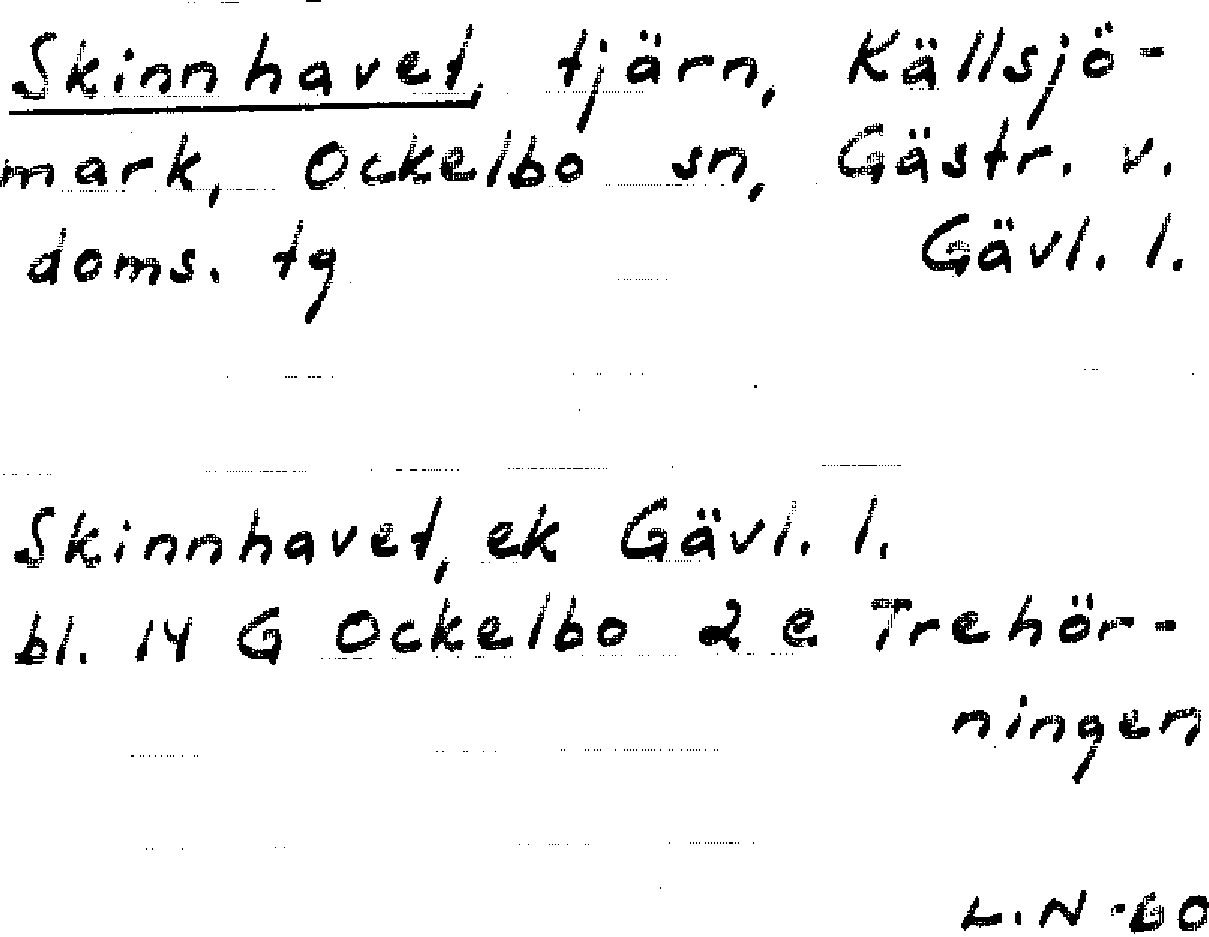 Skinnhavet, tjärn, Källsjö-
mark, Ockelbo sn, Gästr. v.
doms. tg Gävl. l.
Skinnhavet, ek Gävl. l.
bl. 14 G Ockelbo 2 e Trehör-
ningen
L.N -60